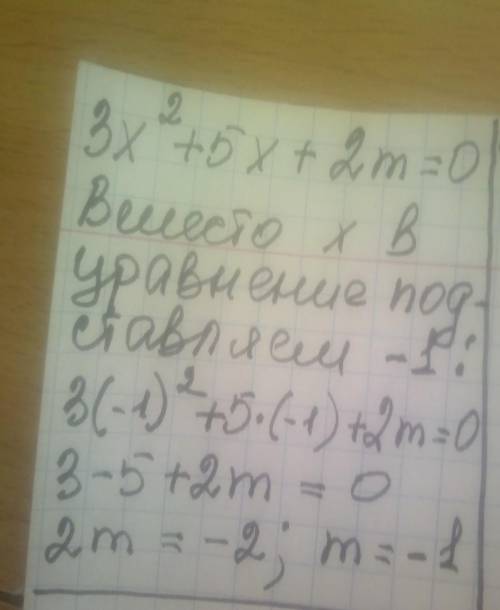 3x²+5x+2m=0
Вместо x в
уравнение под-
ставляем -1:
3(-1)²+5·(-1)+2m=0
3-5+2m=0
2m=-2; m=-1